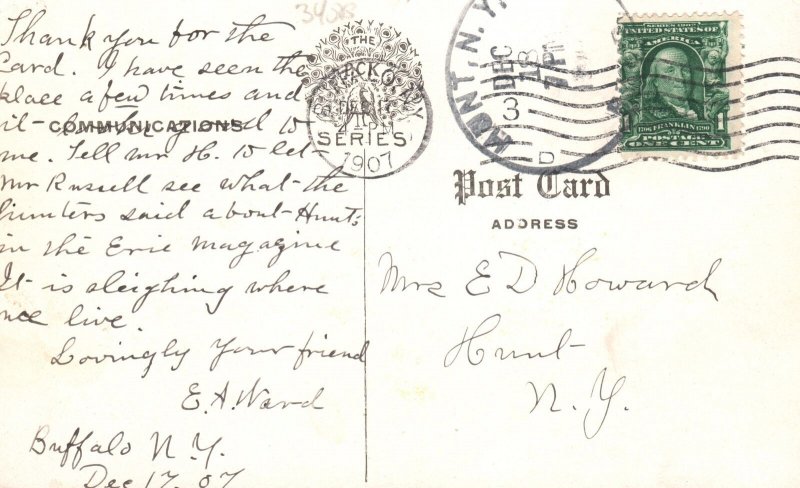 3458
Thank you for the
Card. I have seen the
place a few times and
it looks good to
COMMUNICATIONS
me. Tell Mr H. to let
Mr Russell see what the
hunters said about Hunts
in the Erie Magazine
It is sleighing where
we live.
Lovingly your friend
E. A. Ward
Buffalo N. Y.
Dec 17. 07
THE
SERIES
1907
HUNT, N.Y.
DEC
18
3
D
SERIES 1902
UNITED STATES OF
AMERICA
1706 FRANKLIN 1790
POSTAGE
1 1
ONE CENT
Post Card
ADDRESS
Mrs E D Howard
Hunt
N. Y.